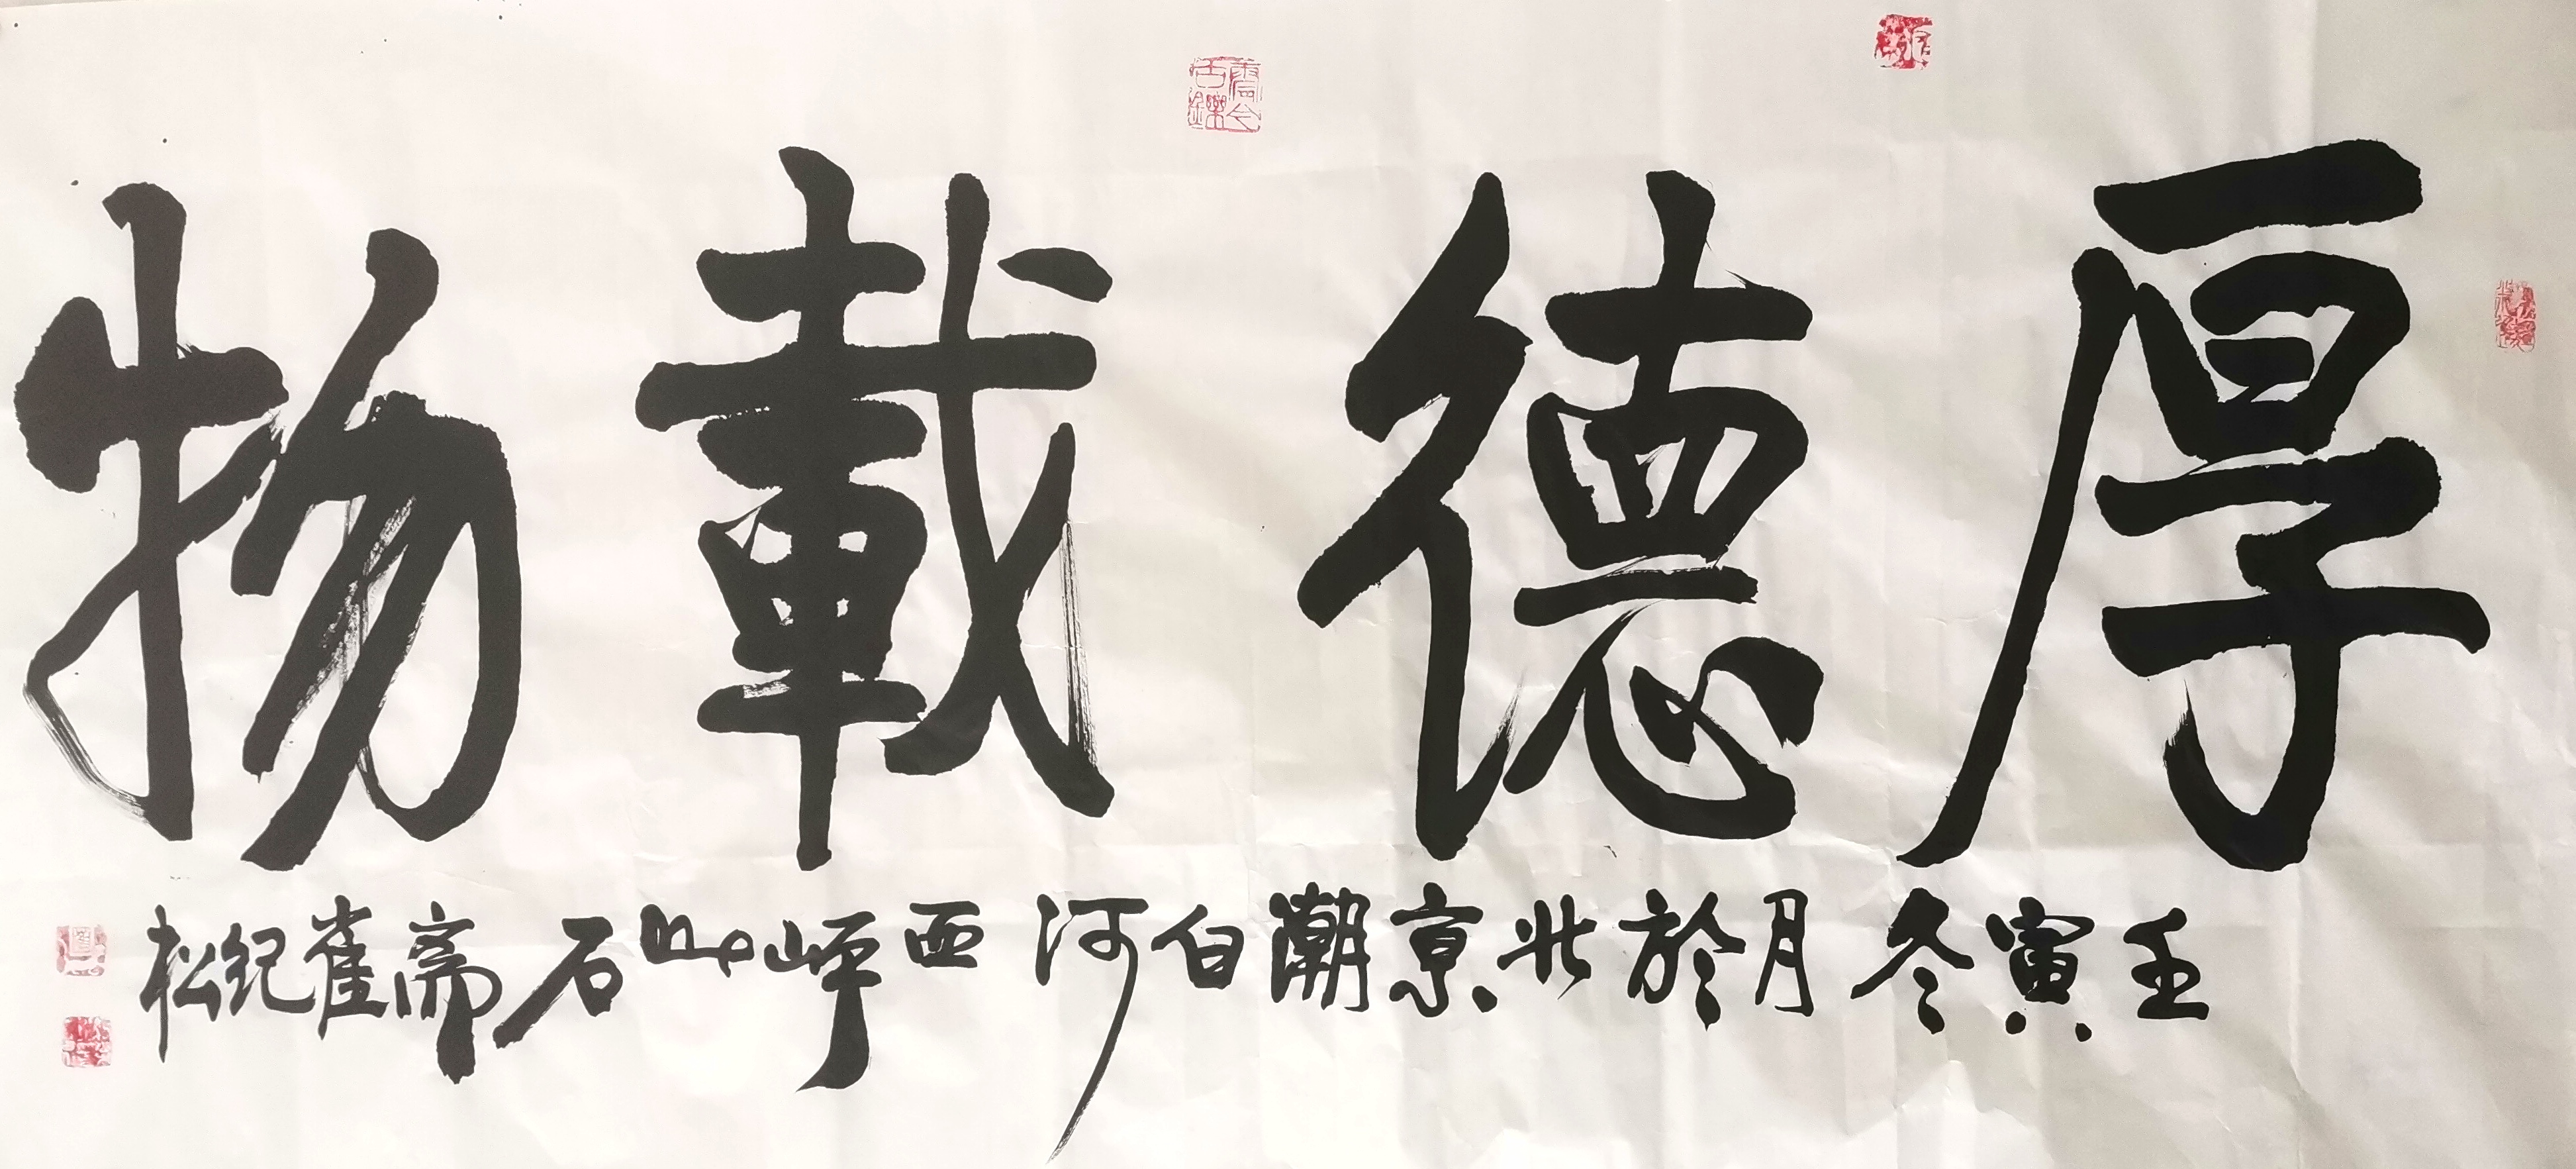 厚德載物
壬寅冬月於北京潮白河西岸山石斋崔纪松